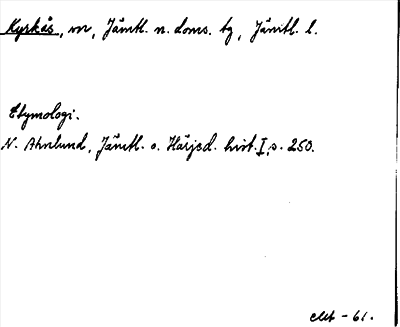 Kyrkås, sn, Jämtl. n. doms. tg, Jämtl. l.
Etymologi.
N. Ahnlund, Jämtl. o. Härjed. hist. I, s. 250.
-61.